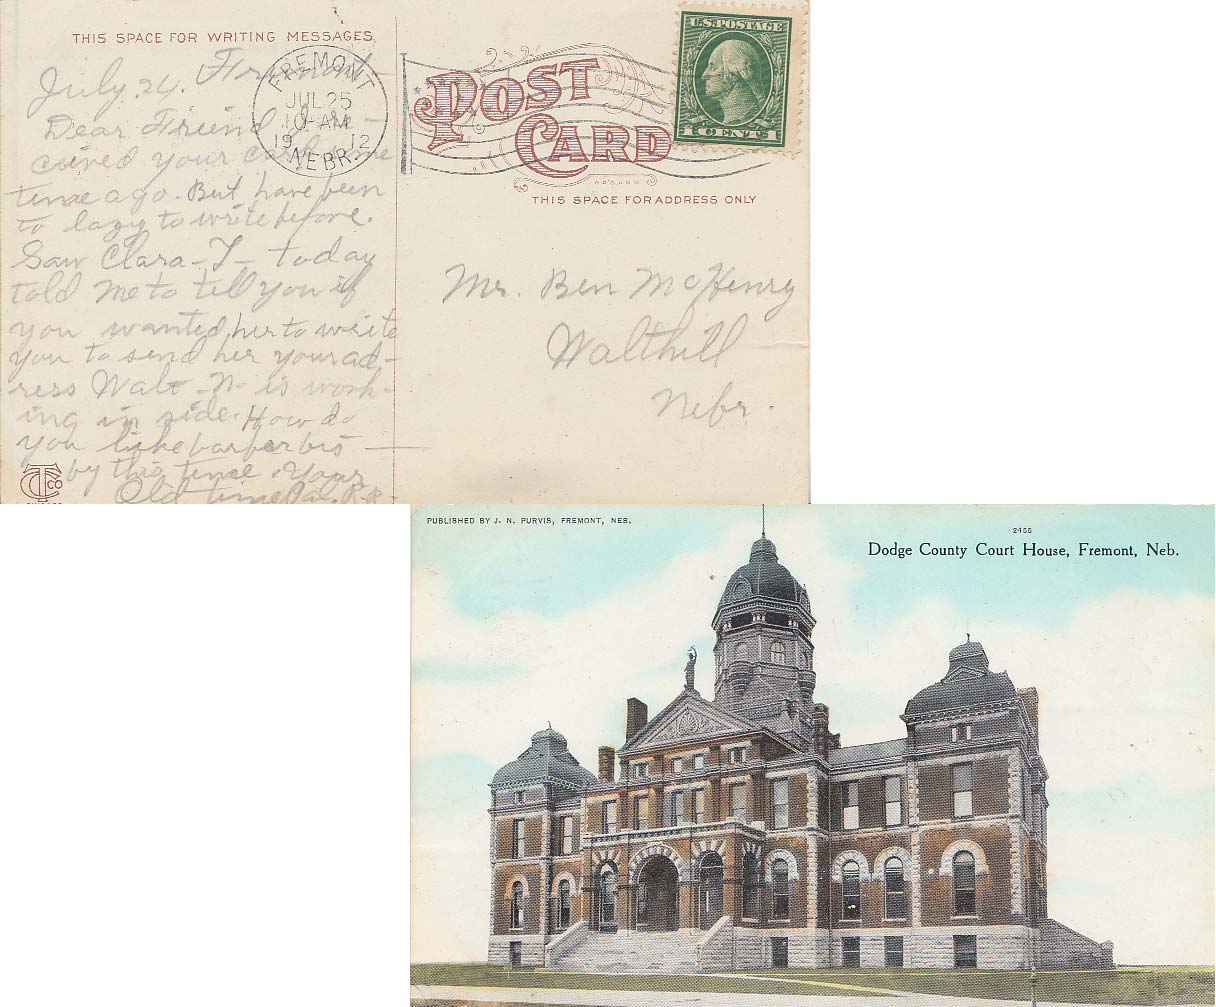 THIS SPACE FOR WRITING MESSAGES
July 24. Fremont
Dear Friend
ceived your card some
time ago. But have been
to lazy to write before.
Saw Clara - T - today
told me to tell you if
you wanted her to write
you to send her your ad-
ress Walt - N - is work-
ing in side. How do
you like barber bis -
by this time. Your
Old time Pal. R.R.
TC CO
FREMONT
JUL 25
10-AM
1912
NEBR.
POST
CARD
THIS SPACE FOR ADDRESS ONLY
U.S. POSTAGE
1 CENT 1
Mr. Ben McHenry
Walthill
Nebr.
PUBLISHED BY J. N. PURVIS, FREMONT, NEB.
2455
Dodge County Court House, Fremont, Neb.